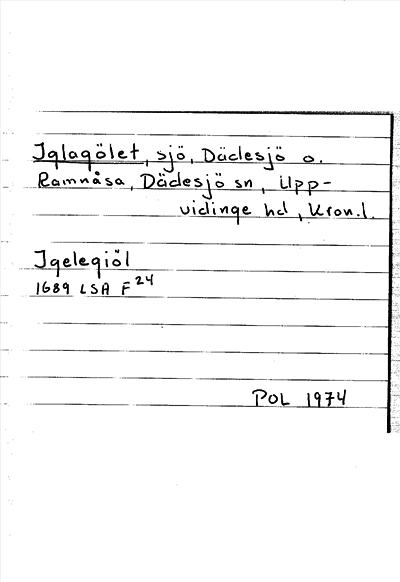 Iglagölet, sjö, Dädesjö o.
Ramnåsa, Dädesjö sn, Upp-
vidinge hd, Kron.l.
Igelegiöl
1689 LSA F 24
POL 1974